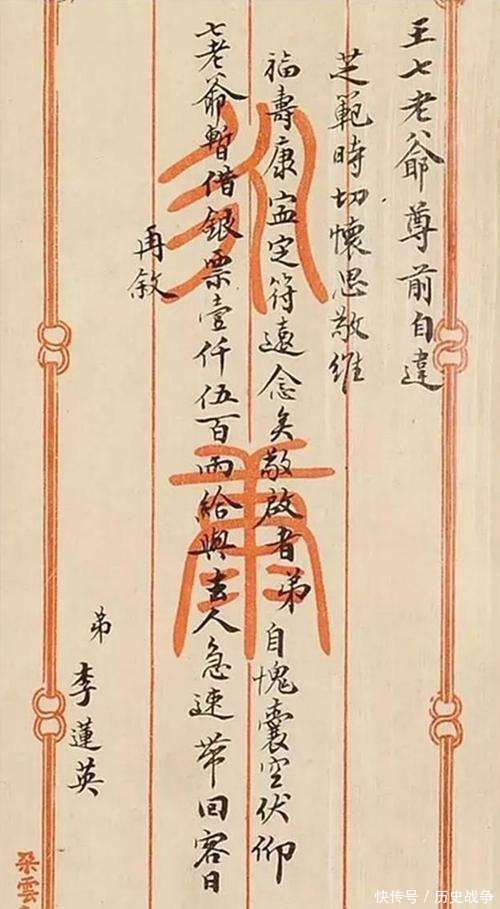 王七老爺尊前自違
芝範時切懷思敬維
福壽康寍定符遠念矣敬啟者弟自愧囊空伏仰
七老爺暫借銀票壹仟伍百兩給與去人急速帶回容日
再敘
弟 李蓮英
朵雲
快传号/历史战争